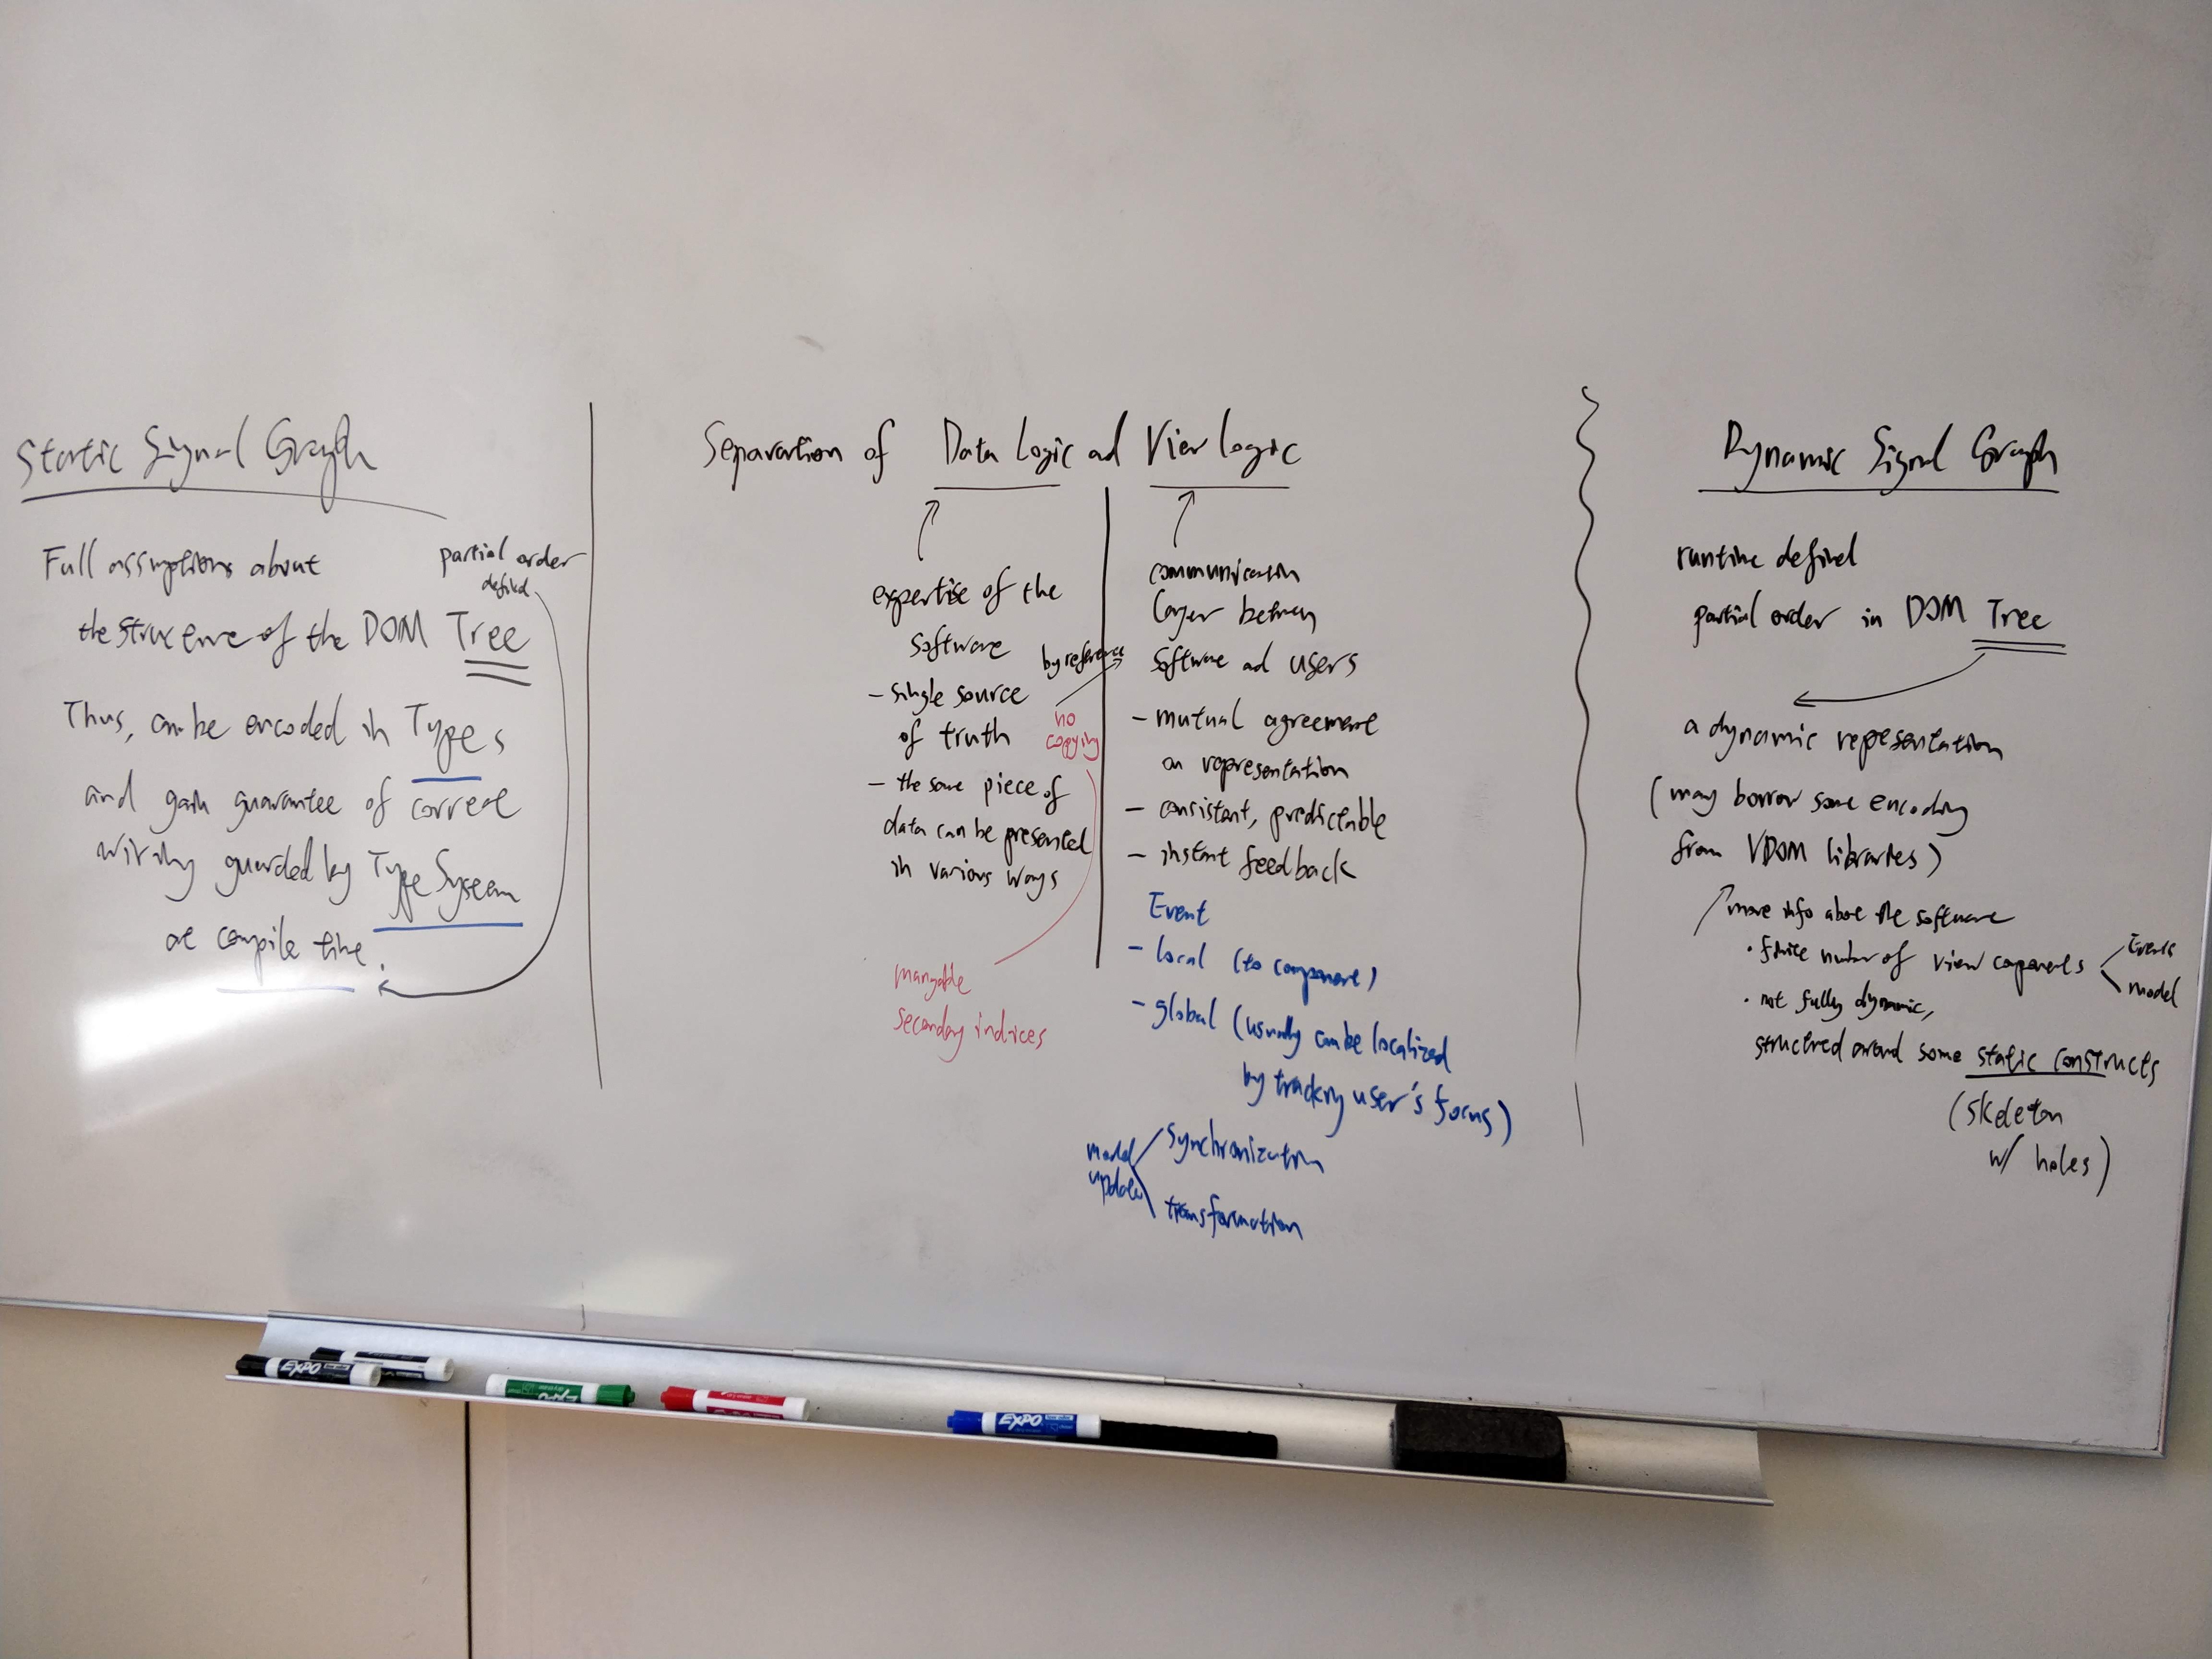 Static Signal Graph
Full assumptions about
the structure of the DOM Tree
partial order
defined
Thus, can be encoded in Types
and gain guarantee of correct
wiring guarded by Type System
at compile time.
Separation of Data Logic and View logic
expertise of the
software
- single source
of truth
- the same piece of
data can be presented
in various ways
by reference
no
copying
secondary indices
communication
layer between
software and users
- mutual agreement
on representation
- consistent, predictable
- instant feedback
Event
- local (to component)
- global (usually can be localized
by tracking user's focus)
model
update
synchronization
transformation
Dynamic Signal Graph
runtime defined
partial order in DOM Tree
a dynamic representation
(may borrow some encoding
from VDOM libraries)
more info about the software
· finite number of view components
Events
model
· not fully dynamic,
structured around some static constructs
(skeleton
w/ holes)
EXPO
EXPO
EXPO